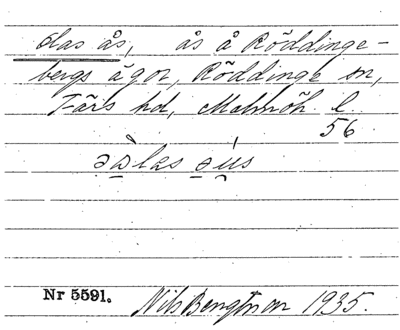 Olas ås, ås å Röddinge-
bergs ägor, Röddinge sn,
Färs hd, Malmöh. l.
56
Nr 5591. Nils Bengtsson 1935.